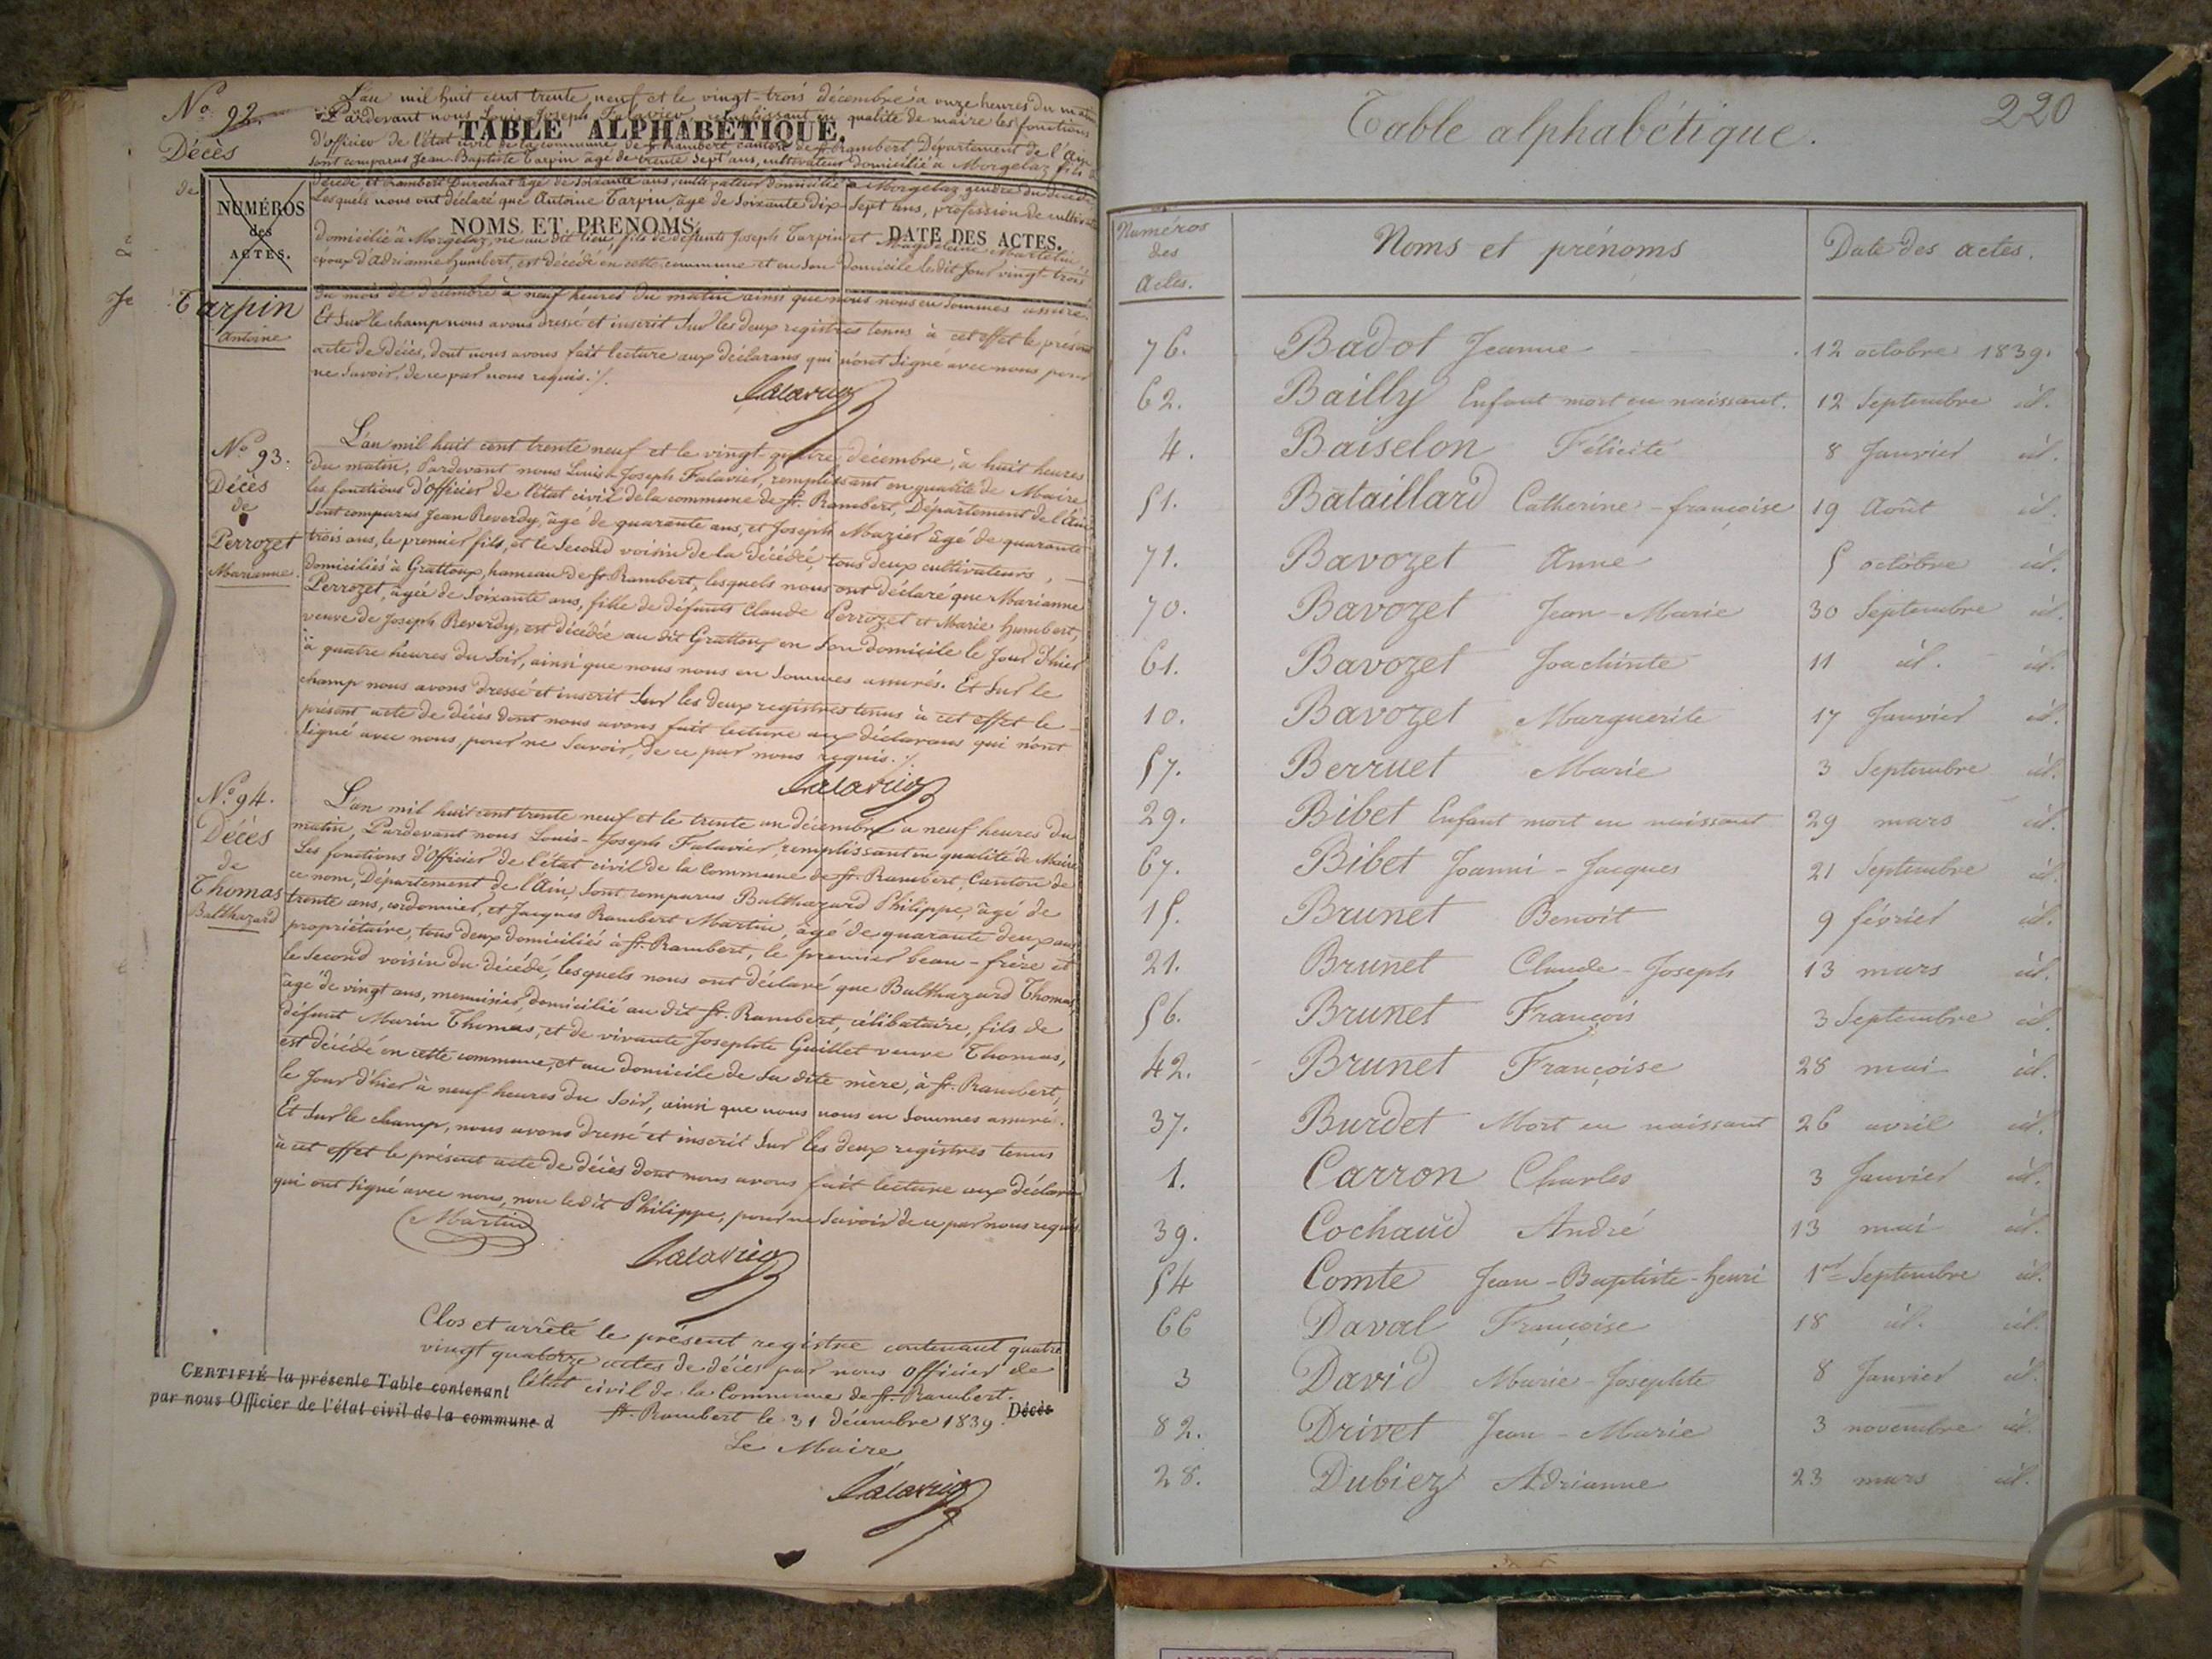 N.o 92.
Décès
de
Tarpin
Antoine
TABLE ALPHABÉTIQUE.
NUMÉROS
des
ACTES.
NOMS ET PRENOMS.
DATE DES ACTES.
L'an mil huit cent trente neuf et le vingt-trois décembre à onze heures du matin
Pardevant nous Louis-Joseph Falavier, remplissant en qualité de maire les fonctions
d'officier de l'état civil de la commune de St. Rambert canton de St. Rambert, Département de l'Ain
sont comparus Jean-Baptiste Tarpin âgé de trente sept ans, cultivateur domicilié à Morgelaz fils du
décédé, et Rambert Durochat âgé de soixante ans, cultivateur domicilié à Morgelaz gendre du décédé
Lesquels nous ont déclaré que Antoine Tarpin âgé de soixante dix-sept ans, profession de cultivateur
domicilié à Morgelaz, né au dit lieu, fils de défunts Joseph Tarpin et Magdeleine Martelin
époux d'Adrianne humbert, est décédé en cette commune et en son domicile le dit jour vingt-trois
du mois de décembre à neuf heures du matin ainsi que nous nous en sommes assuré.
Et sur le champ nous avons dressé et inscrit sur les deux registres tenus à cet effet le présent
acte de décès, dont nous avons fait lecture aux déclarans qui n'ont signé avec nous pour
ne savoir, de ce par nous requis./.
Falavier
N.o 93.
Décès
de
Perrozet
Marianne.
L'an mil huit cent trente neuf et le vingt-quatre décembre, à huit heures
du matin, Pardevant nous Louis-Joseph Falavier, remplissant en qualité de Maire
les fonctions d'officier de l'état civil de la commune de St. Rambert, Département de l'Ain
sont comparus Jean Reverdy, âgé de quarante ans, et Joseph Mazier âgé de quarante
trois ans, le premier fils, et le second voisin de la décédée, tous deux cultivateurs,
domiciliés à Grattoux, hameau de St. Rambert, lesquels nous ont déclaré que Marianne
Perrozet, âgée de soixante ans, fille de défunts Claude Perrozet et Marie humbert,
veuve de Joseph Reverdy, est décédée au dit Grattoux en son domicile le jour d'hier
à quatre heures du soir, ainsi que nous nous en sommes assurés. Et sur le
champ nous avons dressé et inscrit sur les deux registres tenus à cet effet le
présent acte de décès dont nous avons fait lecture aux déclarans qui n'ont
signé avec nous pour ne savoir, de ce par nous requis./.
Falavier
N.o 94.
Décès
de
Thomas
Balthazard
L'an mil huit cent trente neuf et le trente un décembre à neuf heures du
matin, Pardevant nous Louis-Joseph Falavier, remplissant en qualité de Maire
les fonctions d'officier de l'état civil de la Commune de St. Rambert, Canton de
ce nom, Département de l'Ain, sont comparus Balthazard Philippe, âgé de
trente ans, cordonnier, et Jacques Rambert Martin, âgé de quarante deux ans
propriétaire, tous deux domiciliés à St. Rambert, le premier beau-frère et
le second voisin du décédé, lesquels nous ont déclaré que Balthazard Thomas,
âgé de vingt ans, menuisier, domicilié au dit St. Rambert, célibataire, fils de
défunt Marin Thomas, et de vivante Josephte Guillet veuve Thomas,
est décédé en cette commune, et au domicile de sa dite mère, à St. Rambert,
le jour d'hier à neuf heures du soir, ainsi que nous nous en sommes assuré.
Et sur le champ, nous avons dressé et inscrit sur les deux registres tenus
à cet effet le présent acte de décès dont nous avons fait lecture aux déclarans
qui ont signé avec nous, non le dit Philippe, pour ne savoir de ce par nous requis.
Martin
Falavier
Clos et arrêté le présent registre contenant quatre
vingt quatorze actes de décès par nous officier de
l'état civil de la Commune de St. Rambert.
CERTIFIÉ la présente Table contenant
Décès
par nous Officier de l'état civil de la commune d
St. Rambert le 31 décembre 1839.
Le Maire
Falavier
220
Table alphabétique.
Numéros
des
actes.
Noms et prénoms
Date des actes.
76. Badot Jeanne 12 octobre 1839.
62. Bailly Enfant mort en naissant. 12 Septembre id.
4. Baiselon Félicité 8 Janvier id.
51. Bataillard Catherine-françoise 19 Août id.
71. Bavozet Anne 5 octobre id.
70. Bavozet Jean-Marie 30 Septembre id.
61. Bavozet Joachinte 11 id. id.
10. Bavozet Marguerite 17 Janvier id.
57. Berruet Marie 3 Septembre id.
29. Bibet Enfant mort en naissant 29 mars id.
67. Bibet Joanni-Jacques 21 Septembre id.
15. Brunet Benoit 9 février id.
21. Brunet Claude-Joseph 13 mars id.
56. Brunet François 3 Septembre id.
42. Brunet Françoise 28 mai id.
37. Burdet Mort en naissant 26 avril id.
1. Carron Charles 3 Janvier id.
39. Cochaud André 13 mai id.
54 Comte Jean-Baptiste-henri 1er Septembre id.
66 Daval Françoise 18 id. id.
3 David Marie-Josephte 8 Janvier id.
82. Drivet Jean-Marie 3 novembre id.
28. Dubiez Adrianne 23 mars id.